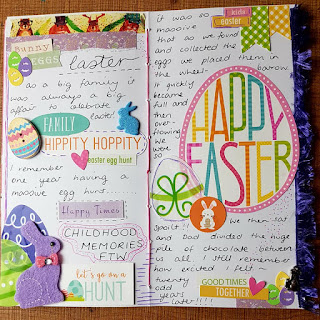 Bunny
EGGS
Easter
as a big family it
was always a big
affair to celebrate
easter!
FAMILY
HIPPITY HOPPITY
easter egg hunt
I remember
one year having a
massive egg hunt
Happy Times
CHILDHOOD
MEMORIES
FTW
let's go on a
HUNT
it was so
massive
that as we found
and collected the
eggs we placed them in
the wheel-barrow
kids
easter
It quickly
became
full and
then
over-
flowing
we
were
HAPPY
EASTER
spoilt!! we then sat
and dad divided the huge
pile of chocolate between
us all I still remember
how excited I felt
twenty
odd
years
later!
GOOD TIMES
TOGETHER